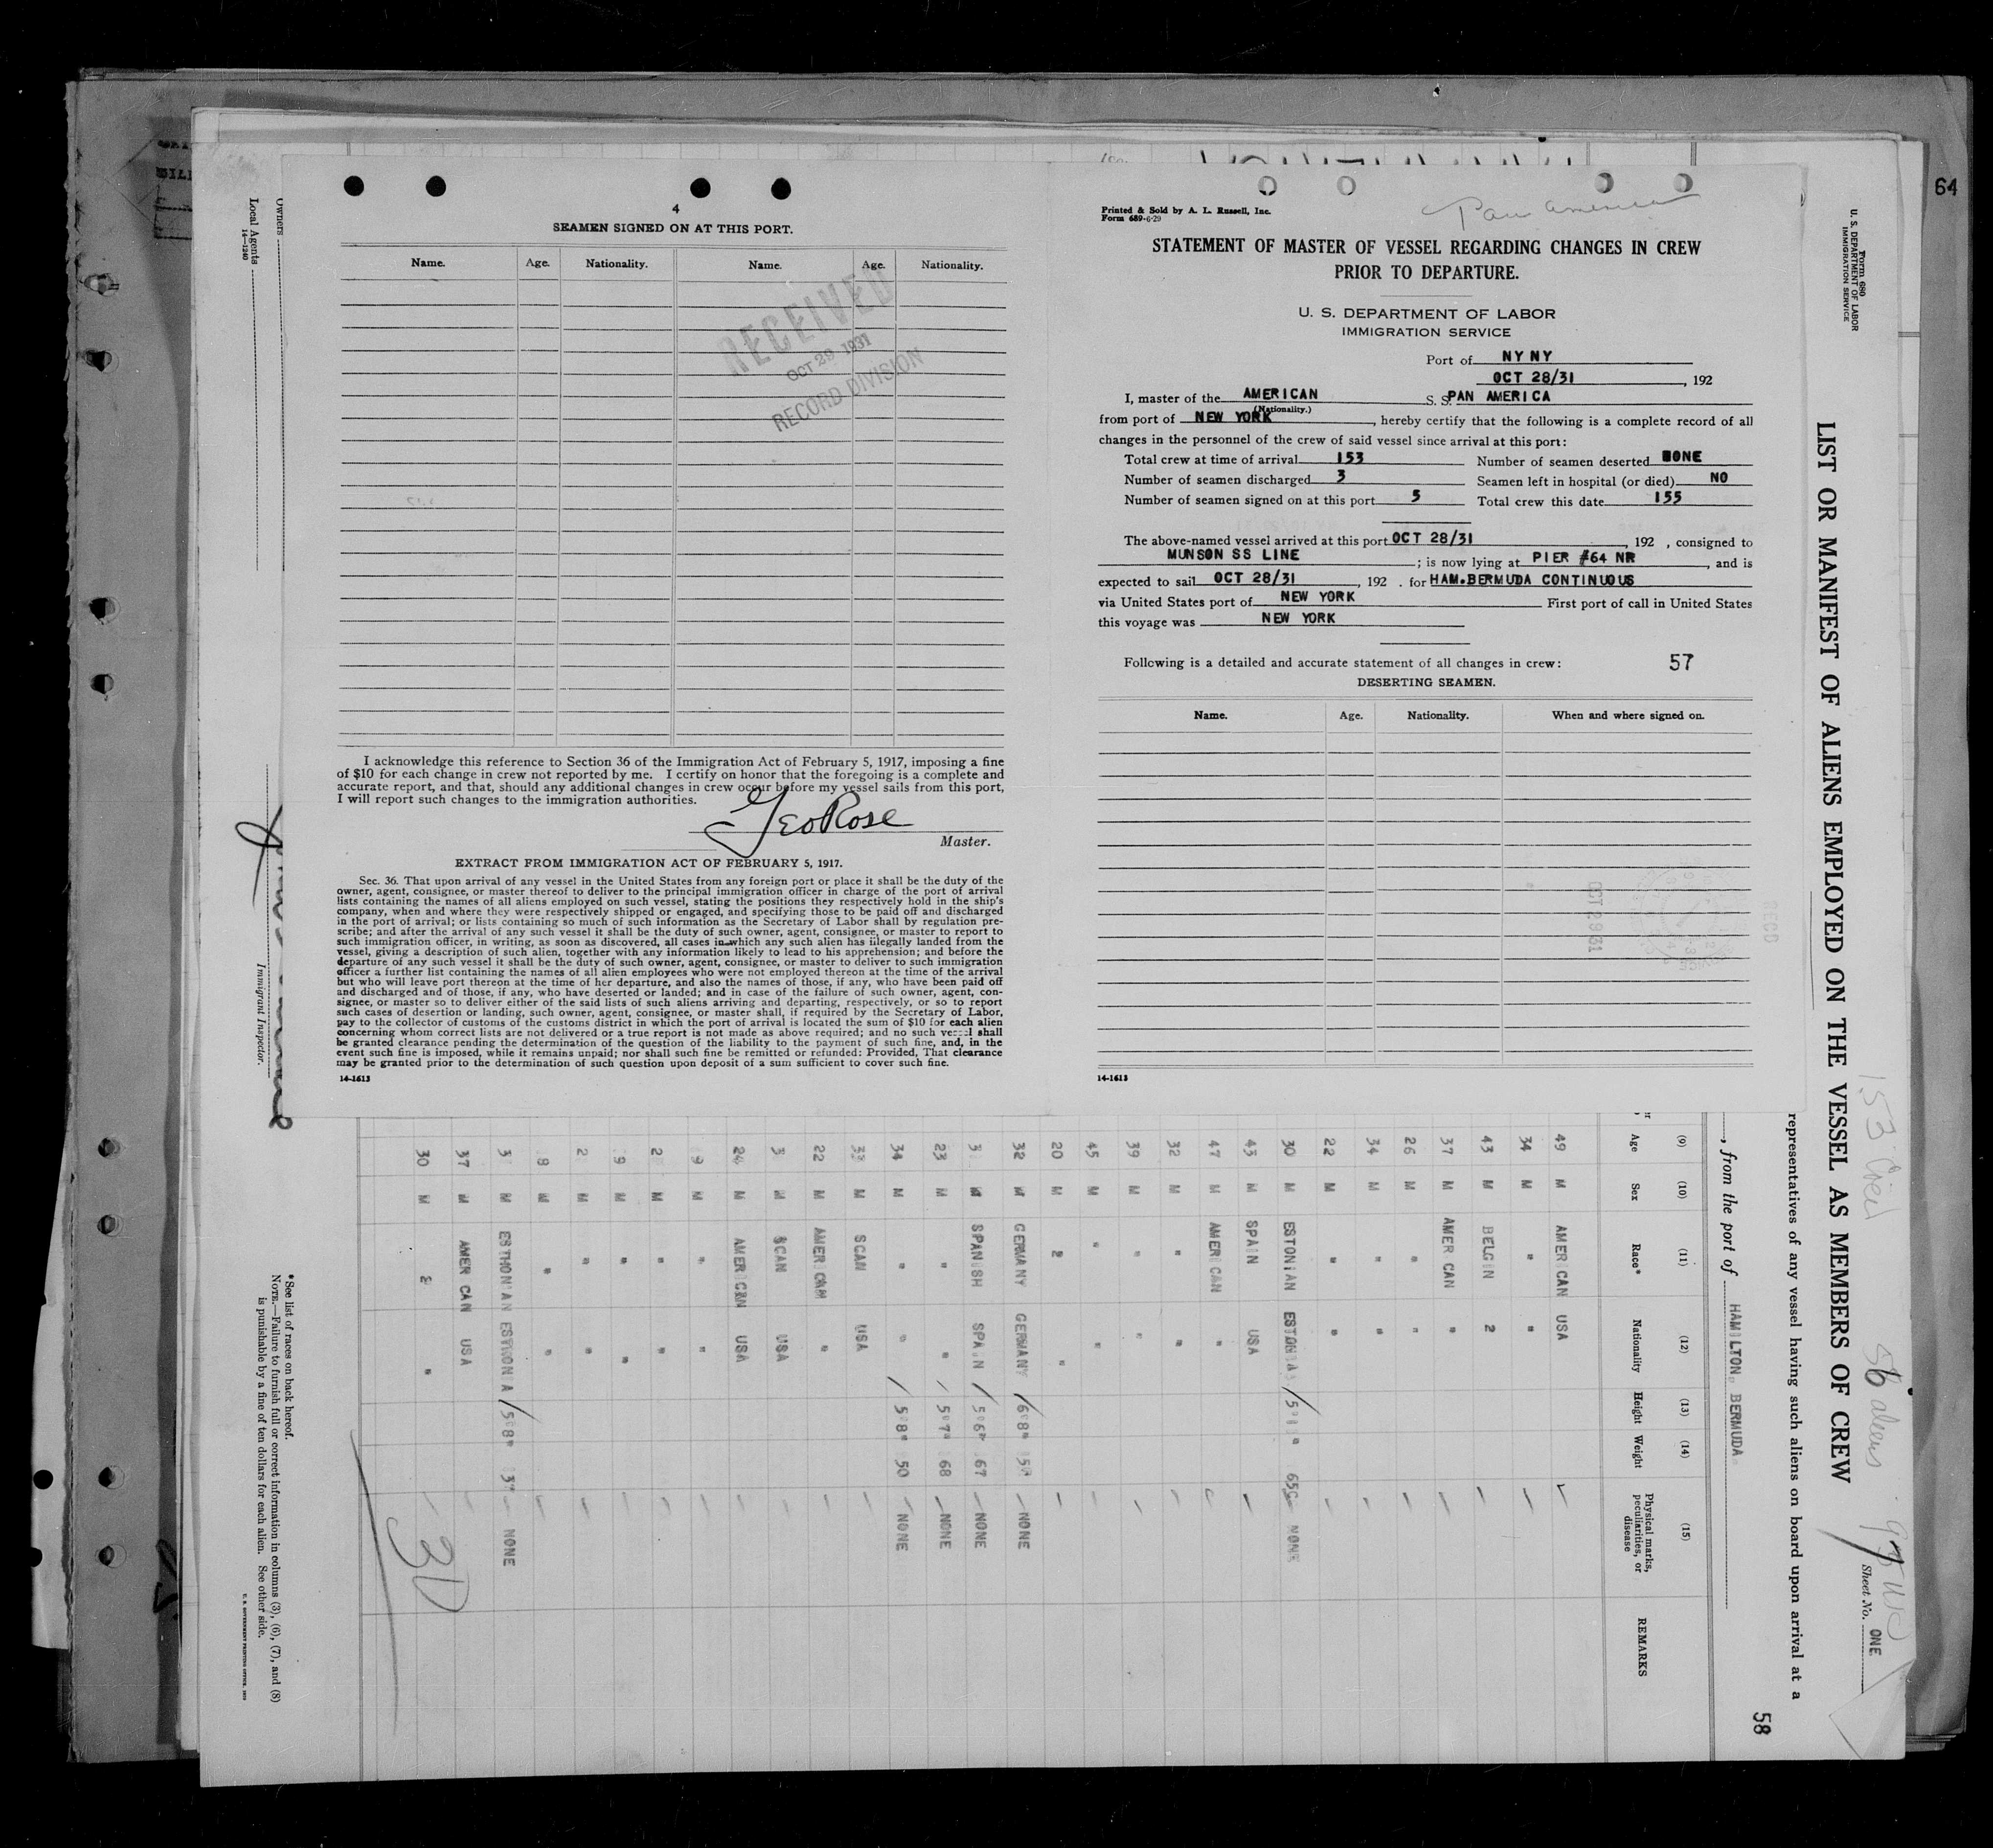 64
4
SEAMEN SIGNED ON AT THIS PORT.
Name. Age. Nationality. Name. Age. Nationality.
RECEIVED
OCT 29 1931
RECORD DIVISION
I acknowledge this reference to Section 36 of the Immigration Act of February 5, 1917, imposing a fine
of $10 for each change in crew not reported by me. I certify on honor that the foregoing is a complete and
accurate report, and that, should any additional changes in crew occur before my vessel sails from this port,
I will report such changes to the immigration authorities.
Geo Rose
Master.
EXTRACT FROM IMMIGRATION ACT OF FEBRUARY 5, 1917.
Sec. 36. That upon arrival of any vessel in the United States from any foreign port or place it shall be the duty of the
owner, agent, consignee, or master thereof to deliver to the principal immigration officer in charge of the port of arrival
lists containing the names of all aliens employed on such vessel, stating the positions they respectively hold in the ship's
company, when and where they were respectively shipped or engaged, and specifying those to be paid off and discharged
in the port of arrival; or lists containing so much of such information as the Secretary of Labor shall by regulation pre-
scribe; and after the arrival of any such vessel it shall be the duty of such owner, agent, consignee, or master to report to
such immigration officer, in writing, as soon as discovered, all cases in which any such alien has illegally landed from the
vessel, giving a description of such alien, together with any information likely to lead to his apprehension; and before the
departure of any such vessel it shall be the duty of such owner, agent, consignee, or master to deliver to such immigration
officer a further list containing the names of all alien employees who were not employed thereon at the time of the arrival
but who will leave port thereon at the time of her departure, and also the names of those, if any, who have been paid off
and discharged and of those, if any, who have deserted or landed; and in case of the failure of such owner, agent, con-
signee, or master so to deliver either of the said lists of such aliens arriving and departing, respectively, or so to report
such cases of desertion or landing, such owner, agent, consignee, or master shall, if required by the Secretary of Labor,
pay to the collector of customs of the customs district in which the port of arrival is located the sum of $10 for each alien
concerning whom correct lists are not delivered or a true report is not made as above required; and no such vessel shall
be granted clearance pending the determination of the question of the liability to the payment of such fine, and, in the
event such fine is imposed, while it remains unpaid; nor shall such fine be remitted or refunded: Provided, That clearance
may be granted prior to the determination of such question upon deposit of a sum sufficient to cover such fine.
14-1613
Printed & Sold by A. L. Russell, Inc.
Form 689-6-29
Pan America
STATEMENT OF MASTER OF VESSEL REGARDING CHANGES IN CREW
PRIOR TO DEPARTURE.
U. S. DEPARTMENT OF LABOR
IMMIGRATION SERVICE
Port of NY NY
OCT 28/31, 192
I, master of the AMERICAN S. S. PAN AMERICA
(Nationality.)
from port of NEW YORK, hereby certify that the following is a complete record of all
changes in the personnel of the crew of said vessel since arrival at this port:
Total crew at time of arrival 153 Number of seamen deserted NONE
Number of seamen discharged 3 Seamen left in hospital (or died) NO
Number of seamen signed on at this port 5 Total crew this date 155
The above-named vessel arrived at this port OCT 28/31, 192 , consigned to
MUNSON SS LINE; is now lying at PIER #64 NR, and is
expected to sail OCT 28/31, 192 . for HAM.BERMUDA CONTINUOUS
via United States port of NEW YORK First port of call in United States
this voyage was NEW YORK
Following is a detailed and accurate statement of all changes in crew: 57
DESERTING SEAMEN.
Name. Age. Nationality. When and where signed on.
14-1613
Form 680
U. S. DEPARTMENT OF LABOR
IMMIGRATION SERVICE
LIST OR MANIFEST OF ALIENS EMPLOYED ON THE VESSEL AS MEMBERS OF CREW
Sheet No. ONE
representatives of any vessel having such aliens on board upon arrival at a
58
, from the port of HAMILTON, BERMUDA.
(9) (10) (11) (12) (13) (14) (15)
Age Sex Race* Nationality Height Weight Physical marks, peculiarities, or disease REMARKS
49 M AMERICAN USA
34 M " "
43 M
37 M AMERICAN "
26 M " "
34 M " "
22 M " "
30 M ESTONIAN NONE
43 M SPAIN USA
47 M AMERICAN "
32 M " "
39 M " "
45 M " "
20 M
32 M GERMANY GERMANY NONE
SPANISH SPAIN NONE
23 M " " NONE
34 M " " NONE
M SCAN USA
22 M AMERICAN "
M SCAN USA
24 M AMERICAN USA
M NONE
37 M AMERICAN USA
30 M
30
*See list of races on back hereof.
NOTE.—Failure to furnish full or correct information in columns (3), (6), (7), and (8)
is punishable by a fine of ten dollars for each alien. See other side.
Owners
Local Agents
14-1240
Immigrant Inspector.